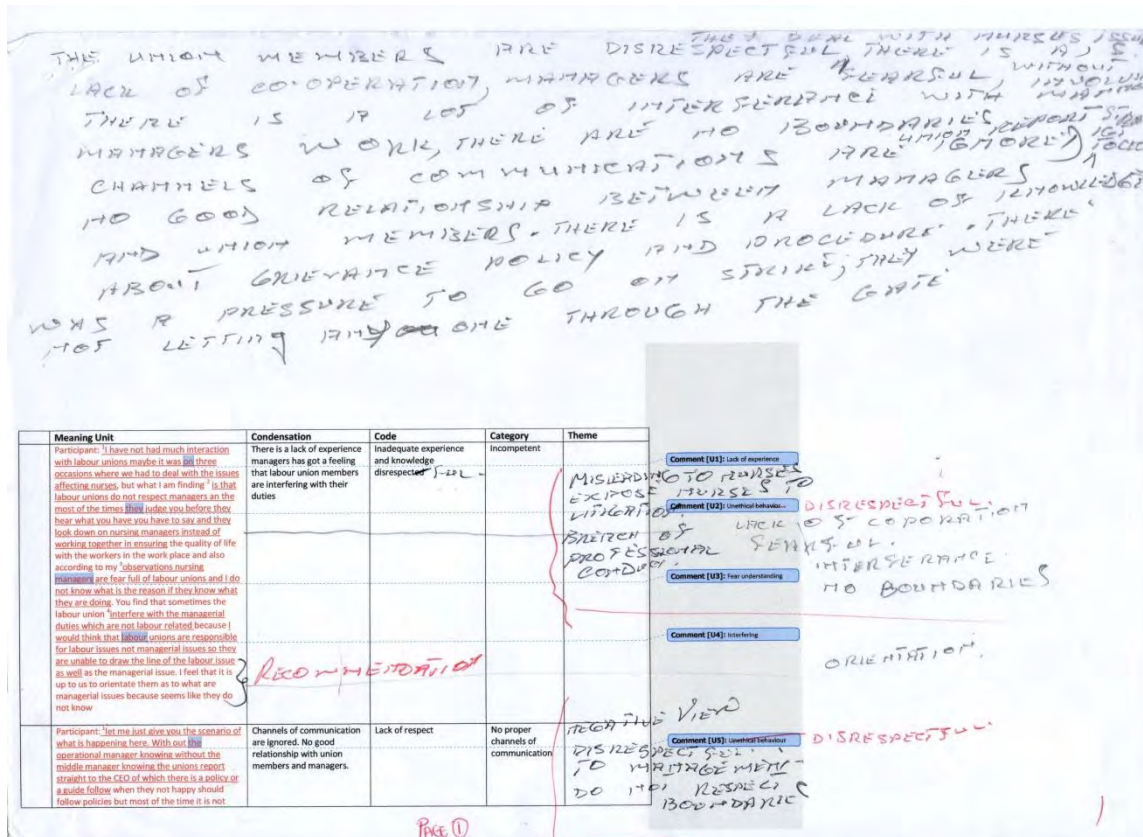 THEY DEAL WITH NURSES ISSU
THE UNION MEMBERS ARE DISRESPECTFUL THERE IS A
LACK OF CO-OPERATION, MANAGERS ARE FEARFUL, WITHOUT
THERE IS A LOT OF INTERFERANCE WITH INVOLVI
MANAGERS WORK, THERE ARE NO BOUNDARIES
CHANNELS OF COMMUNICATIONS ARE IGNORED UNION REPORT
NO GOOD RELATIONSHIP BETWEEN MANAGERS
AND UNION MEMBERS. THERE IS A LACK OF KNOWLEDGE
ABOUT GRIEVANCE POLICY AND PROCEDURE. THERE
WAS A PRESSURE TO GO ON STRIKE, THEY WERE
NOT LETTING ANYONE THROUGH THE GATE
Meaning Unit Condensation Code Category Theme
Participant: 1I have not had much interaction
with labour unions maybe it was on three
occasions where we had to deal with the issues
affecting nurses, but what I am finding 2 is that
labour unions do not respect managers an the
most of the times they judge you before they
hear what you have you have to say and they
look down on nursing managers instead of
working together in ensuring the quality of life
with the workers in the work place and also
according to my 3observations nursing
managers are fear full of labour unions and I do
not know what is the reason if they know what
they are doing. You find that sometimes the
labour union 4interfere with the managerial
duties which are not labour related because I
would think that labour unions are responsible
for labour issues not managerial issues so they
are unable to draw the line of the labour issue
as well as the managerial issue. I feel that it is
up to us to orientate them as to what are
managerial issues because seems like they do
not know
There is a lack of experience
managers has got a feeling
that labour union members
are interfering with their
duties
Inadequate experience
and knowledge
disrespectful
Incompetent
MISLEADING TO NURSES
EXPOSE NURSES TO
LITIGATION.
BREACH OF
PROFESSIONAL
CONDUCT
Comment [U1]: Lack of experience
Comment [U2]: Unethical behaviou...
Comment [U3]: Fear understanding
Comment [U4]: Interfering
DISRESPECTFUL.
LACK OF COPORATION
FEARFUL.
INTERFERANCE
NO BOUNDARIES
ORIENTATION.
RECOMMENDATION
Participant: 5let me just give you the scenario of
what is happening here. With out the
operational manager knowing without the
middle manager knowing the unions report
straight to the CEO of which there is a policy or
a guide follow when they not happy should
follow policies but most of the time it is not
Channels of communication
are ignored. No good
relationship with union
members and managers.
Lack of respect
No proper
channels of
communication
NEGATIVE VIEW
DISRESPECTFUL
TO MANAGEMENT
DO NOT RESPECT
BOUNDARIE
Comment [U5]: Unethical behaviour
DISRESPECTFUL
PAGE 1